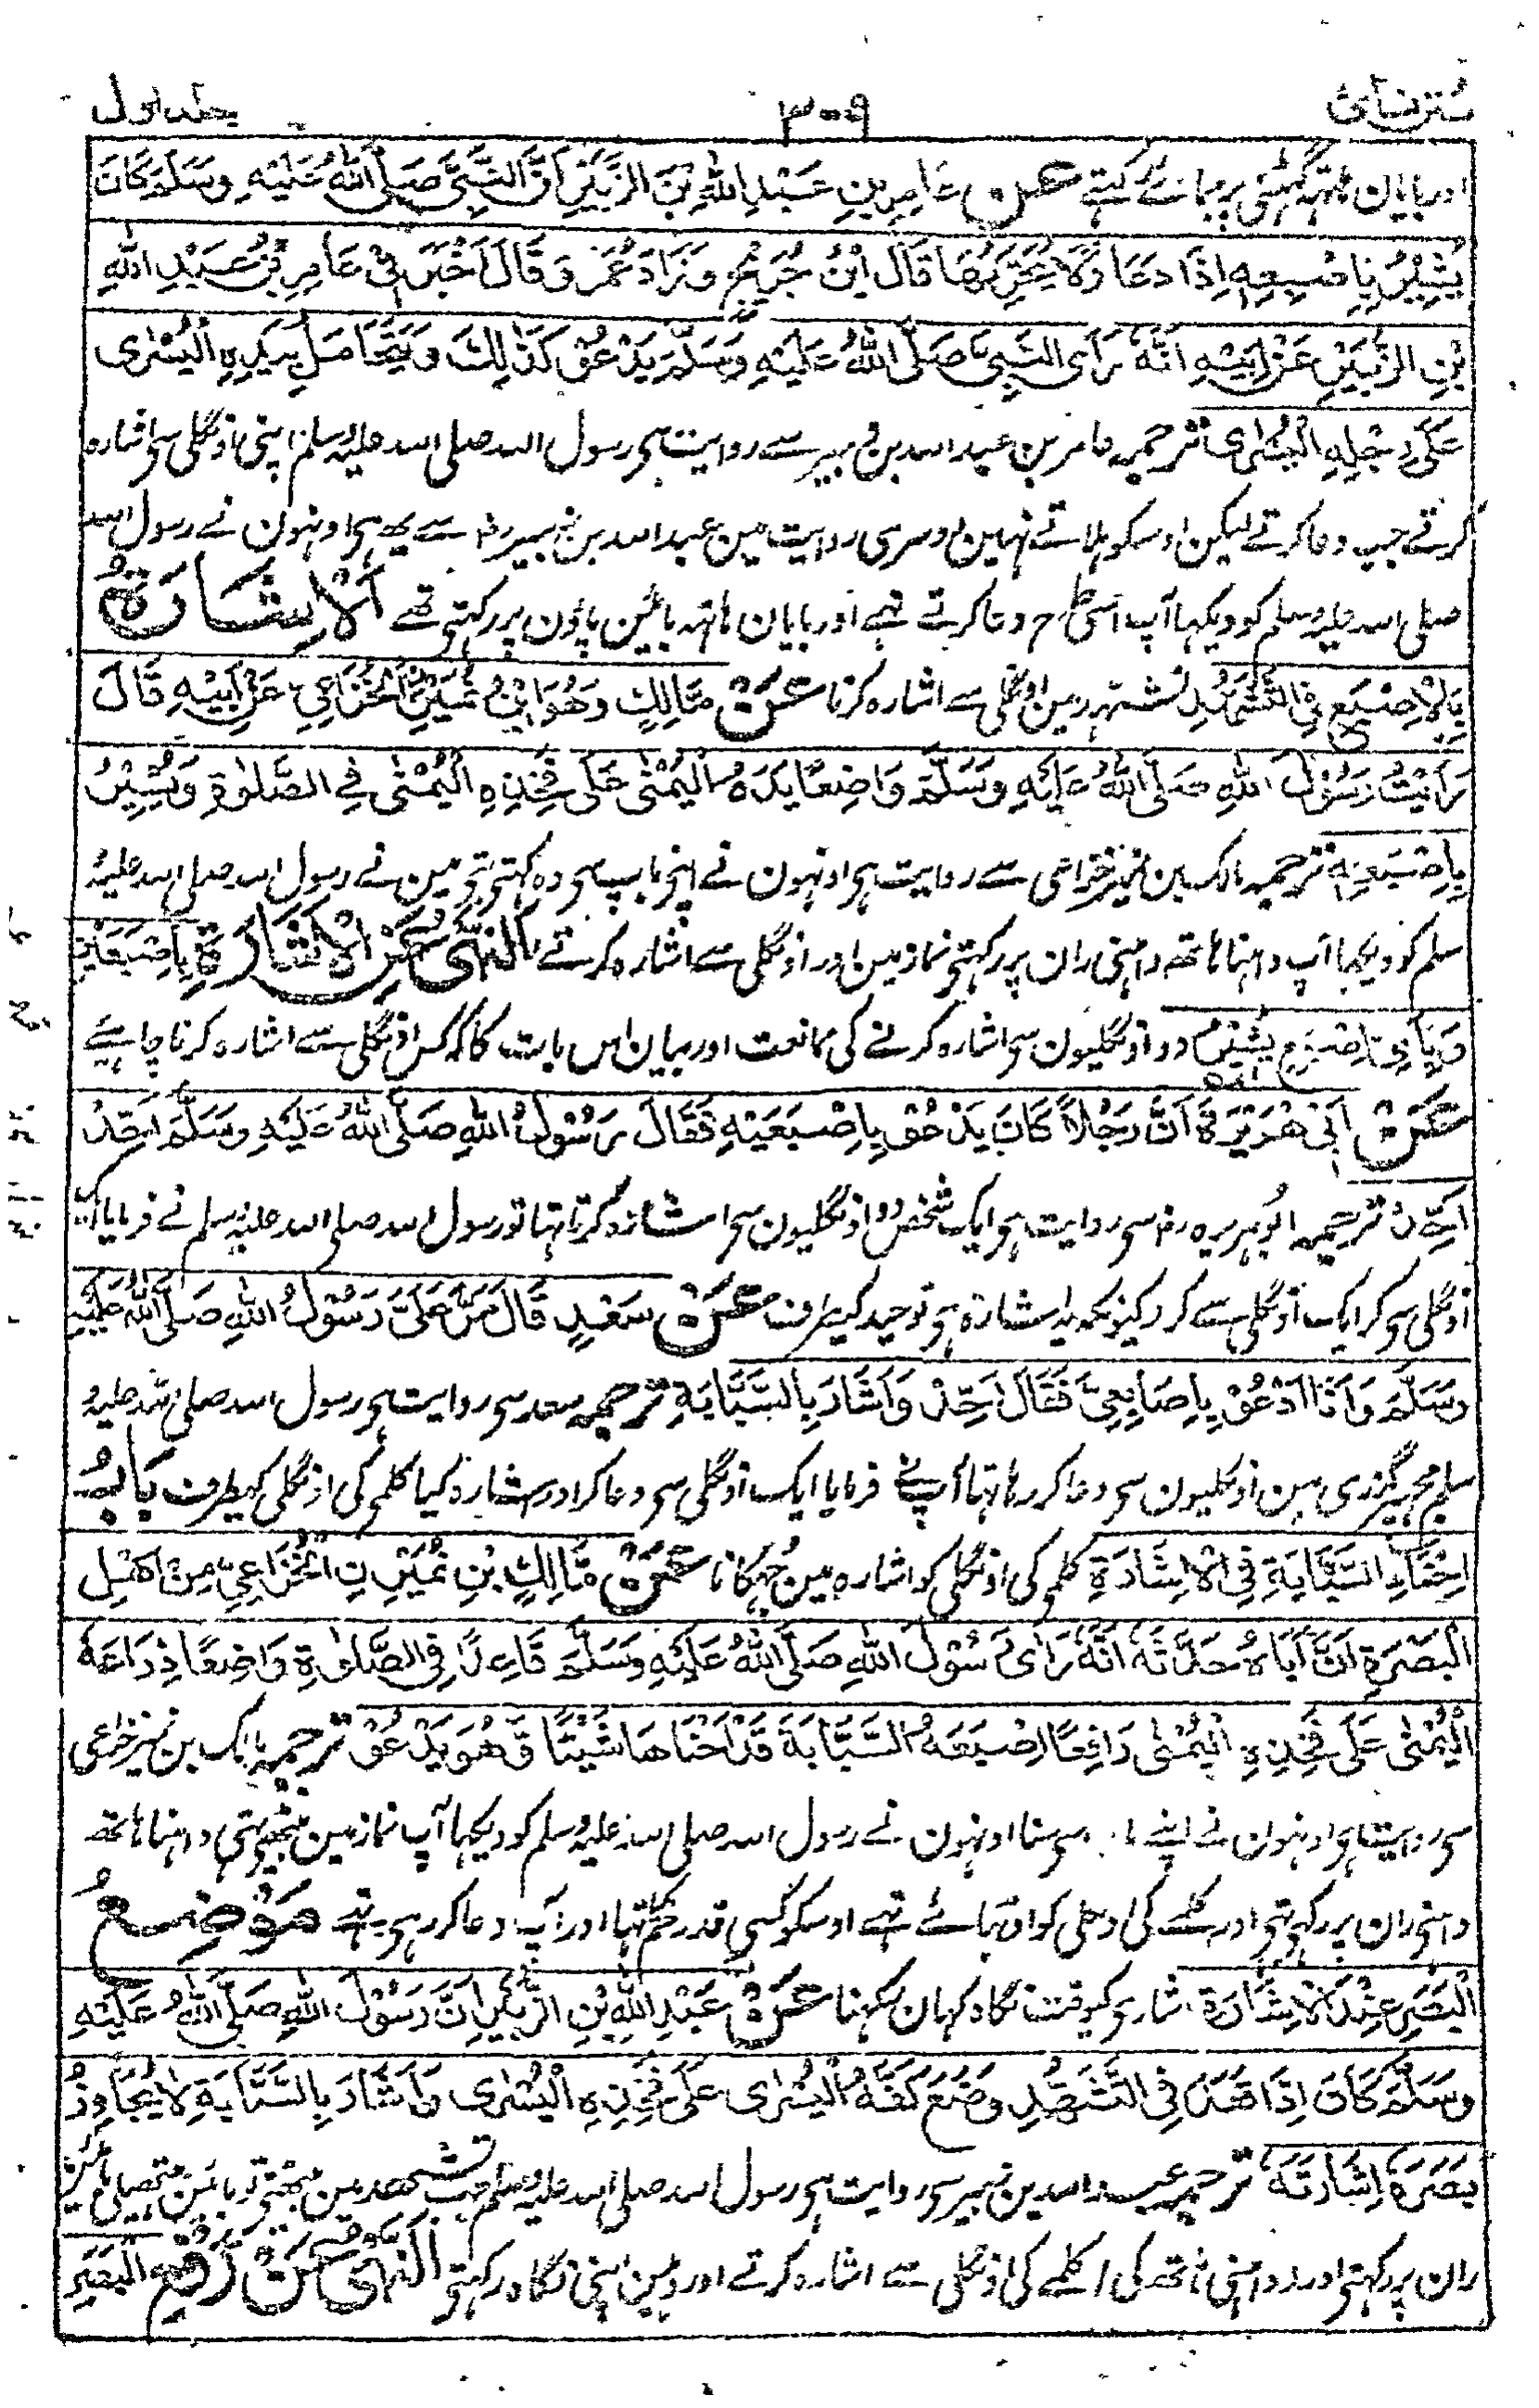 سنن نسائی ۳۰۹ جلد اول
اور بایان ہاتھہ گھٹنی پر جمائے رکہتے عَنْ عَامِرِ بْنِ عَبْدِ اللّٰهِ بْنِ الزُّبَيْرِ اَنَّ النَّبِيَّ صَلَّى اللّٰهُ عَلَيْهِ وَسَلَّمَ كَانَ
يُشِيْرُ بِاِصْبِعِهٖ اِذَا دَعَا وَلَا يُحَرِّكُهَا قَالَ ابْنُ جُرَيْجٍ وَزَادَ عَمْرٌو قَالَ اَخْبَرَنِيْ عَامِرُ بْنُ عَبْدِ اللّٰهِ
بْنِ الزُّبَيْرِ عَنْ اَبِيْهِ اَنَّهٗ رَاَى النَّبِيَّ صَلَّى اللّٰهُ عَلَيْهِ وَسَلَّمَ يَدْعُوْ كَذٰلِكَ وَيَتَحَامَلُ بِيَدِهِ الْيُسْرٰى
عَلٰى رِجْلِهِ الْيُسْرٰى ترجمہ عامر بن عبد اللہ بن زبیر سے روایت ہی رسول اللہ صلی اللہ علیہ وسلم اپنی اونگلی سی اشارہ
کرتے جب دعا کرتے لیکن اوسکو ہلاتے نہین دوسری روایت مین عبد اللہ بن زبیر رضہ سے یہ ہی اونہون نے رسول اللہ
صلی اللہ علیہ وسلم کو دیکھا آپ اسی طرح دعا کرتے تہے اور بایان ہاتہہ بائین پاؤن پر رکہتی تھے اَلْاِشَارَةُ
بِالْاِصْبَعِ فِي التَّشَهُّدِ تشہد مین اونگلی سے اشارہ کرنا عَنْ مَالِكٍ وَهُوَ ابْنُ نُمَيْرٍ الْخُزَاعِيِّ عَنْ اَبِيْهِ قَالَ
رَاَيْتُ رَسُوْلَ اللّٰهِ صَلَّى اللّٰهُ عَلَيْهِ وَسَلَّمَ وَاضِعًا يَدَهُ الْيُمْنٰى عَلٰى فَخِذِهِ الْيُمْنٰى فِي الصَّلٰوةِ وَيُشِيْرُ
بِاِصْبَعِهٖ ترجمہ مالک بن نمیر خزاعی سے روایت ہی اونہون نے اپنی باپ سی وہ کہتی تہی مین نے رسول اللہ صلی اللہ علیہ
سلم کو دیکہا آپ داہنا ہاتھہ داہنی ران پر رکہتی نماز مین اور اونگلی سے اشارہ کرتے اَلنَّهْيُ عَنِ الْاِشَارَةِ بِاِصْبَعَيْنِ
وَبِاَيِّ اِصْبَعٍ يُشِيْرُ دو اونگلیون سی اشارہ کرنے کی ممانعت اور بیان اس بات کا کہ کس اونگلی سے اشارہ کرنا چاہیے
عَنْ اَبِيْ هُرَيْرَةَ اَنَّ رَجُلًا كَانَ يَدْعُوْ بِاِصْبَعَيْهِ فَقَالَ رَسُوْلُ اللّٰهِ صَلَّى اللّٰهُ عَلَيْهِ وَسَلَّمَ اَحِّدْ
اَحِّدْ ترجمہ ابوہریرہ رضہ سی روایت ہی ایک شخص دو اونگلیون سی اشارہ کرتا تہا تو رسول اللہ صلی اللہ علیہ وسلم نے فرمایا ایک
اونگلی سی کر ایک اونگلی سے کر کیونکہ یہ اشارہ ہی توحید کیطرف عَنْ سَعْدٍ قَالَ مَرَّ عَلَيَّ رَسُوْلُ اللّٰهِ صَلَّى اللّٰهُ عَلَيْهِ
وَسَلَّمَ وَاَنَا اَدْعُوْ بِاَصَابِعِيْ فَقَالَ اَحِّدْ وَاَشَارَ بِالسَّبَّابَةِ ترجمہ سعد سی روایت ہی رسول اللہ صلی اللہ علیہ و
سلم مجہپر گزری مین اونگلیون سی دعا کر رہا تہا آپنے فرمایا ایک اونگلی سی دعا کر اور اشارہ کیا کلمی کی اونگلی کیطرف بَابُ
اِحْنَاءِ السَّبَّابَةِ فِي الْاِشَارَةِ کلمی کی اونگلی کو اشارہ مین جہکانا عَنْ مَالِكِ بْنِ نُمَيْرٍ نِ الْخُزَاعِيِّ مِنْ اَهْلِ
الْبَصْرَةِ اَنَّ اَبَاهُ حَدَّثَهٗ اَنَّهٗ رَاٰى رَسُوْلَ اللّٰهِ صَلَّى اللّٰهُ عَلَيْهِ وَسَلَّمَ قَاعِدًا فِي الصَّلٰوةِ وَاضِعًا ذِرَاعَهُ
الْيُمْنٰى عَلٰى فَخِذِهِ الْيُمْنٰى رَافِعًا اِصْبَعَهُ السَّبَّابَةَ قَدْ اَحْنَاهَا شَيْئًا وَّهُوَ يَدْعُوْ ترجمہ مالک بن نمیر خزاعی
سی روایت ہی اونہون نے اپنے سی سنا اونہون نے رسول اللہ صلی اللہ علیہ وسلم کو دیکہا آپ نماز مین بیٹھے تہی داہنا ہاتھہ
داہنی ران پر رکہی تہی اور کلمے کی اونگلی کو اوٹہائے تہے اوسکو کسی قدر خم تہا اور آپ دعا کر رہی تہے مَوْضِعُ
الْبَصَرِ عِنْدَ الْاِشَارَةِ اشاری کیوقت نگاہ کہان رکہنا عَنْ عَبْدِ اللّٰهِ بْنِ الزُّبَيْرِ اَنَّ رَسُوْلَ اللّٰهِ صَلَّى اللّٰهُ عَلَيْهِ
وَسَلَّمَ كَانَ اِذَا قَعَدَ فِي التَّشَهُّدِ وَضَعَ كَفَّهُ الْيُسْرٰى عَلٰى فَخِذِهِ الْيُسْرٰى وَاَشَارَ بِالسَّبَّابَةِ لَا يُجَاوِزُ
بَصَرُهٗ اِشَارَتَهٗ ترجمہ عبد اللہ بن زبیر سی روایت ہی رسول اللہ صلی اللہ علیہ وسلم جب تشہد مین بیٹھتی تو بائین ہتھیلی بائین
ران پر رکہتی اور داہنی ہاتھہ کی کلمے کی اونگلی سے اشارہ کرتے اور وہین اپنی نگاہ رکہتی اَلنَّهْيُ عَنْ رَفْعِ الْبَصَرِ